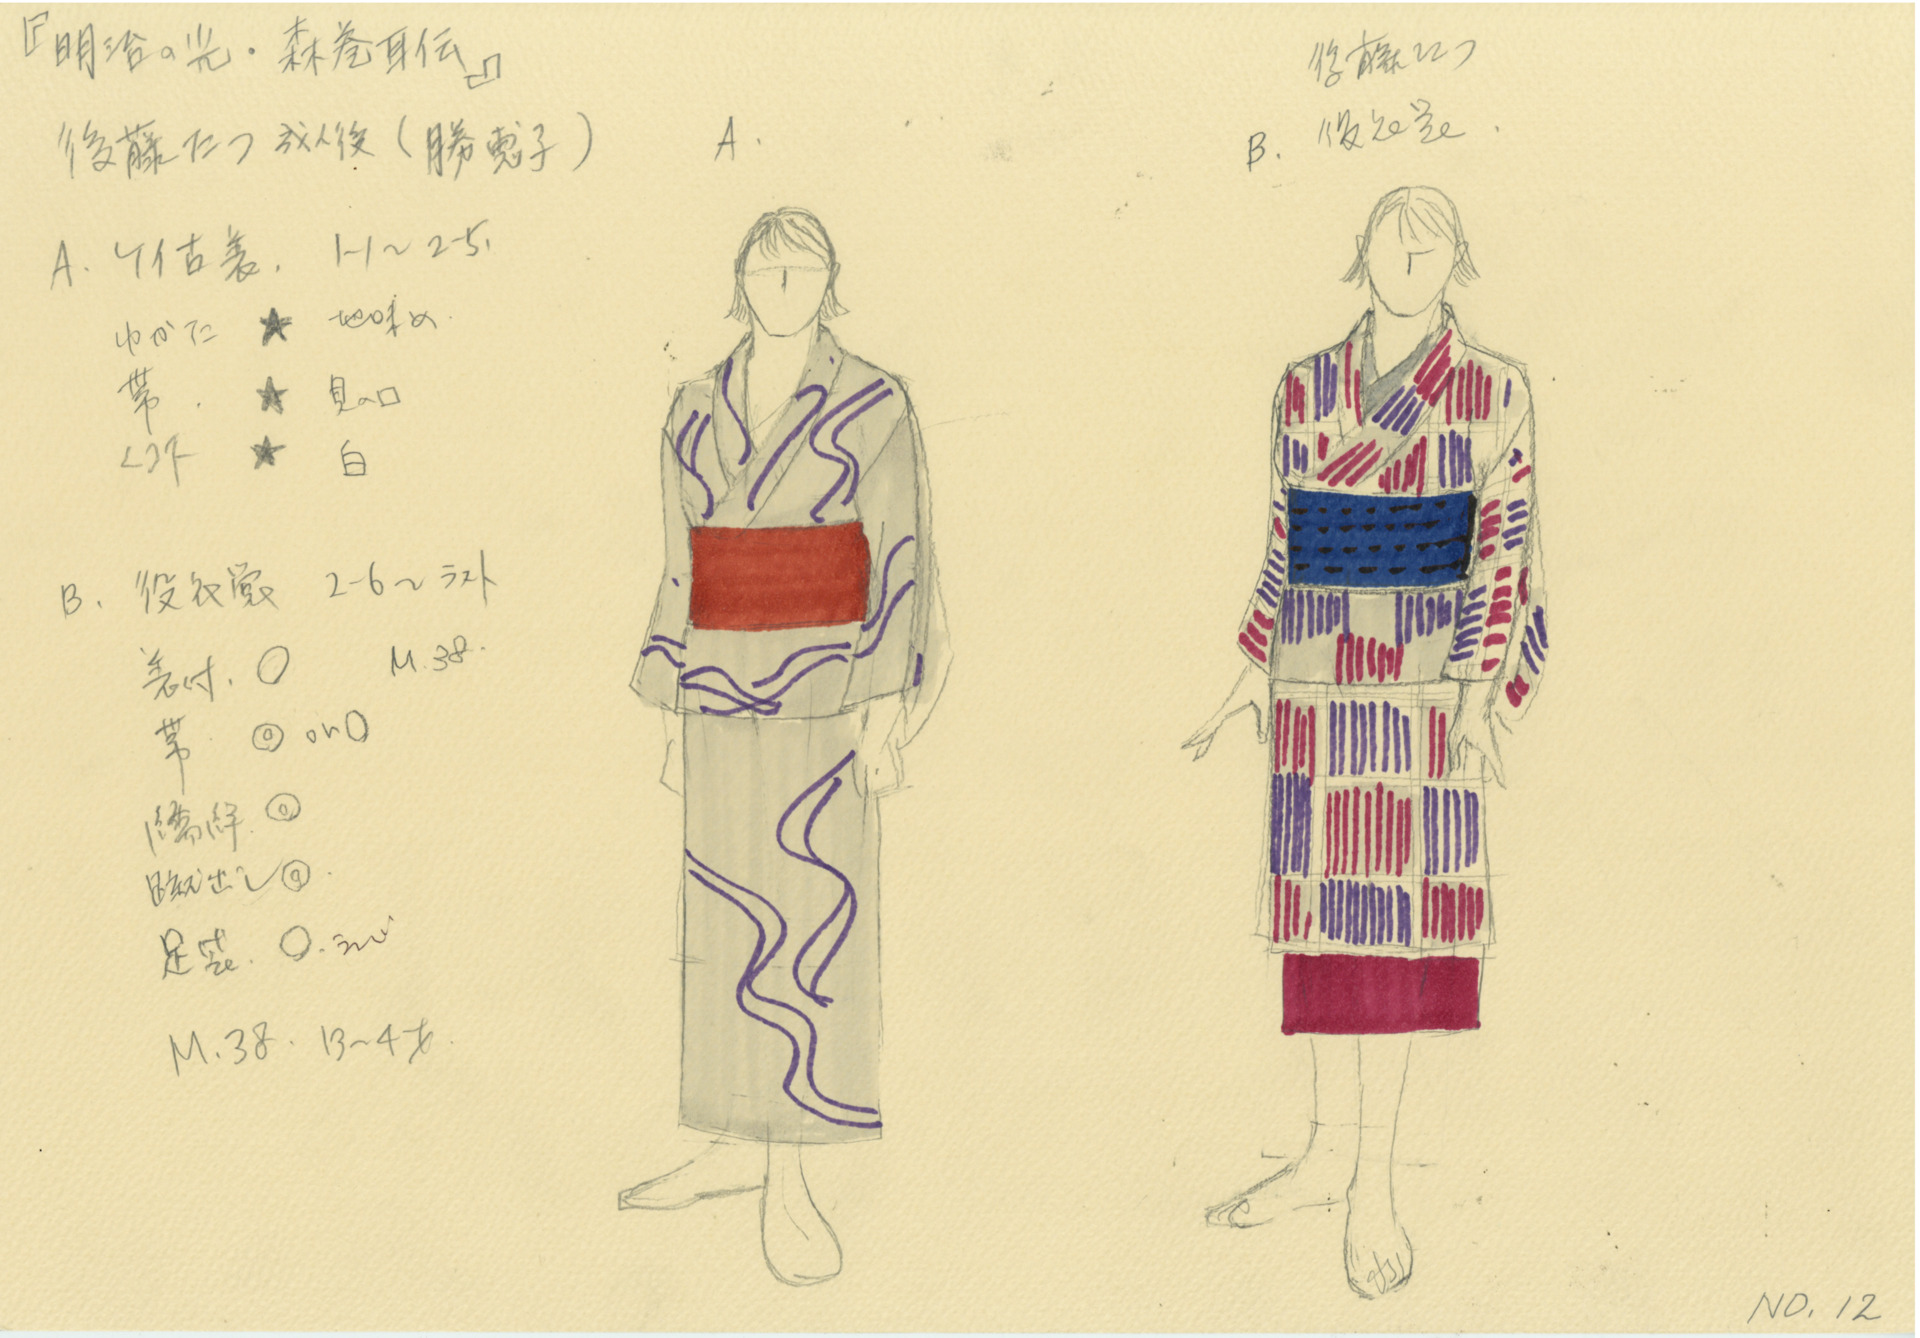 『明治の光・森巻耳伝』
後藤たつ 成人役（勝恵子）
A. ケイ古着. 1-1〜2-5.
ゆかた ★ 地味め.
帯. ★ 貝の口
くつ下 ★ 白
B. 役衣裳 2-6〜ラスト
着付. ○ M.38.
帯. ◎ or ○
襦袢. ◎
蹴出し ◎.
足袋. ○.
M.38. 13〜4才.
A.
後藤たつ
B. 役衣裳.
NO. 12